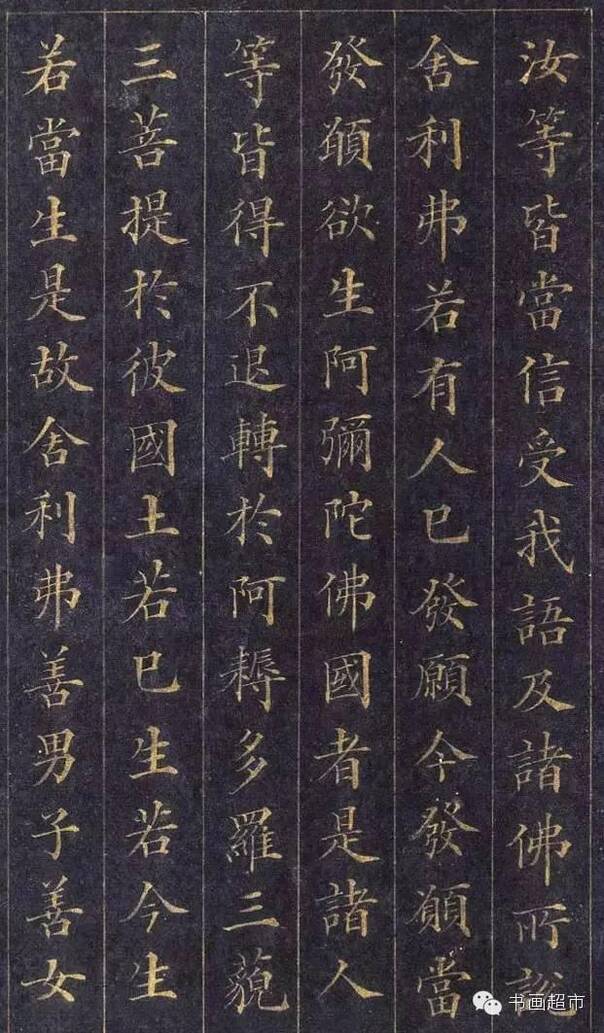 汝等皆當信受我語及諸佛所說
舍利弗若有人已發願今發願當
發願欲生阿彌陀佛國者是諸人
等皆得不退轉於阿耨多羅三藐
三菩提於彼國土若已生若今生
若當生是故舍利弗善男子善女
书画超市